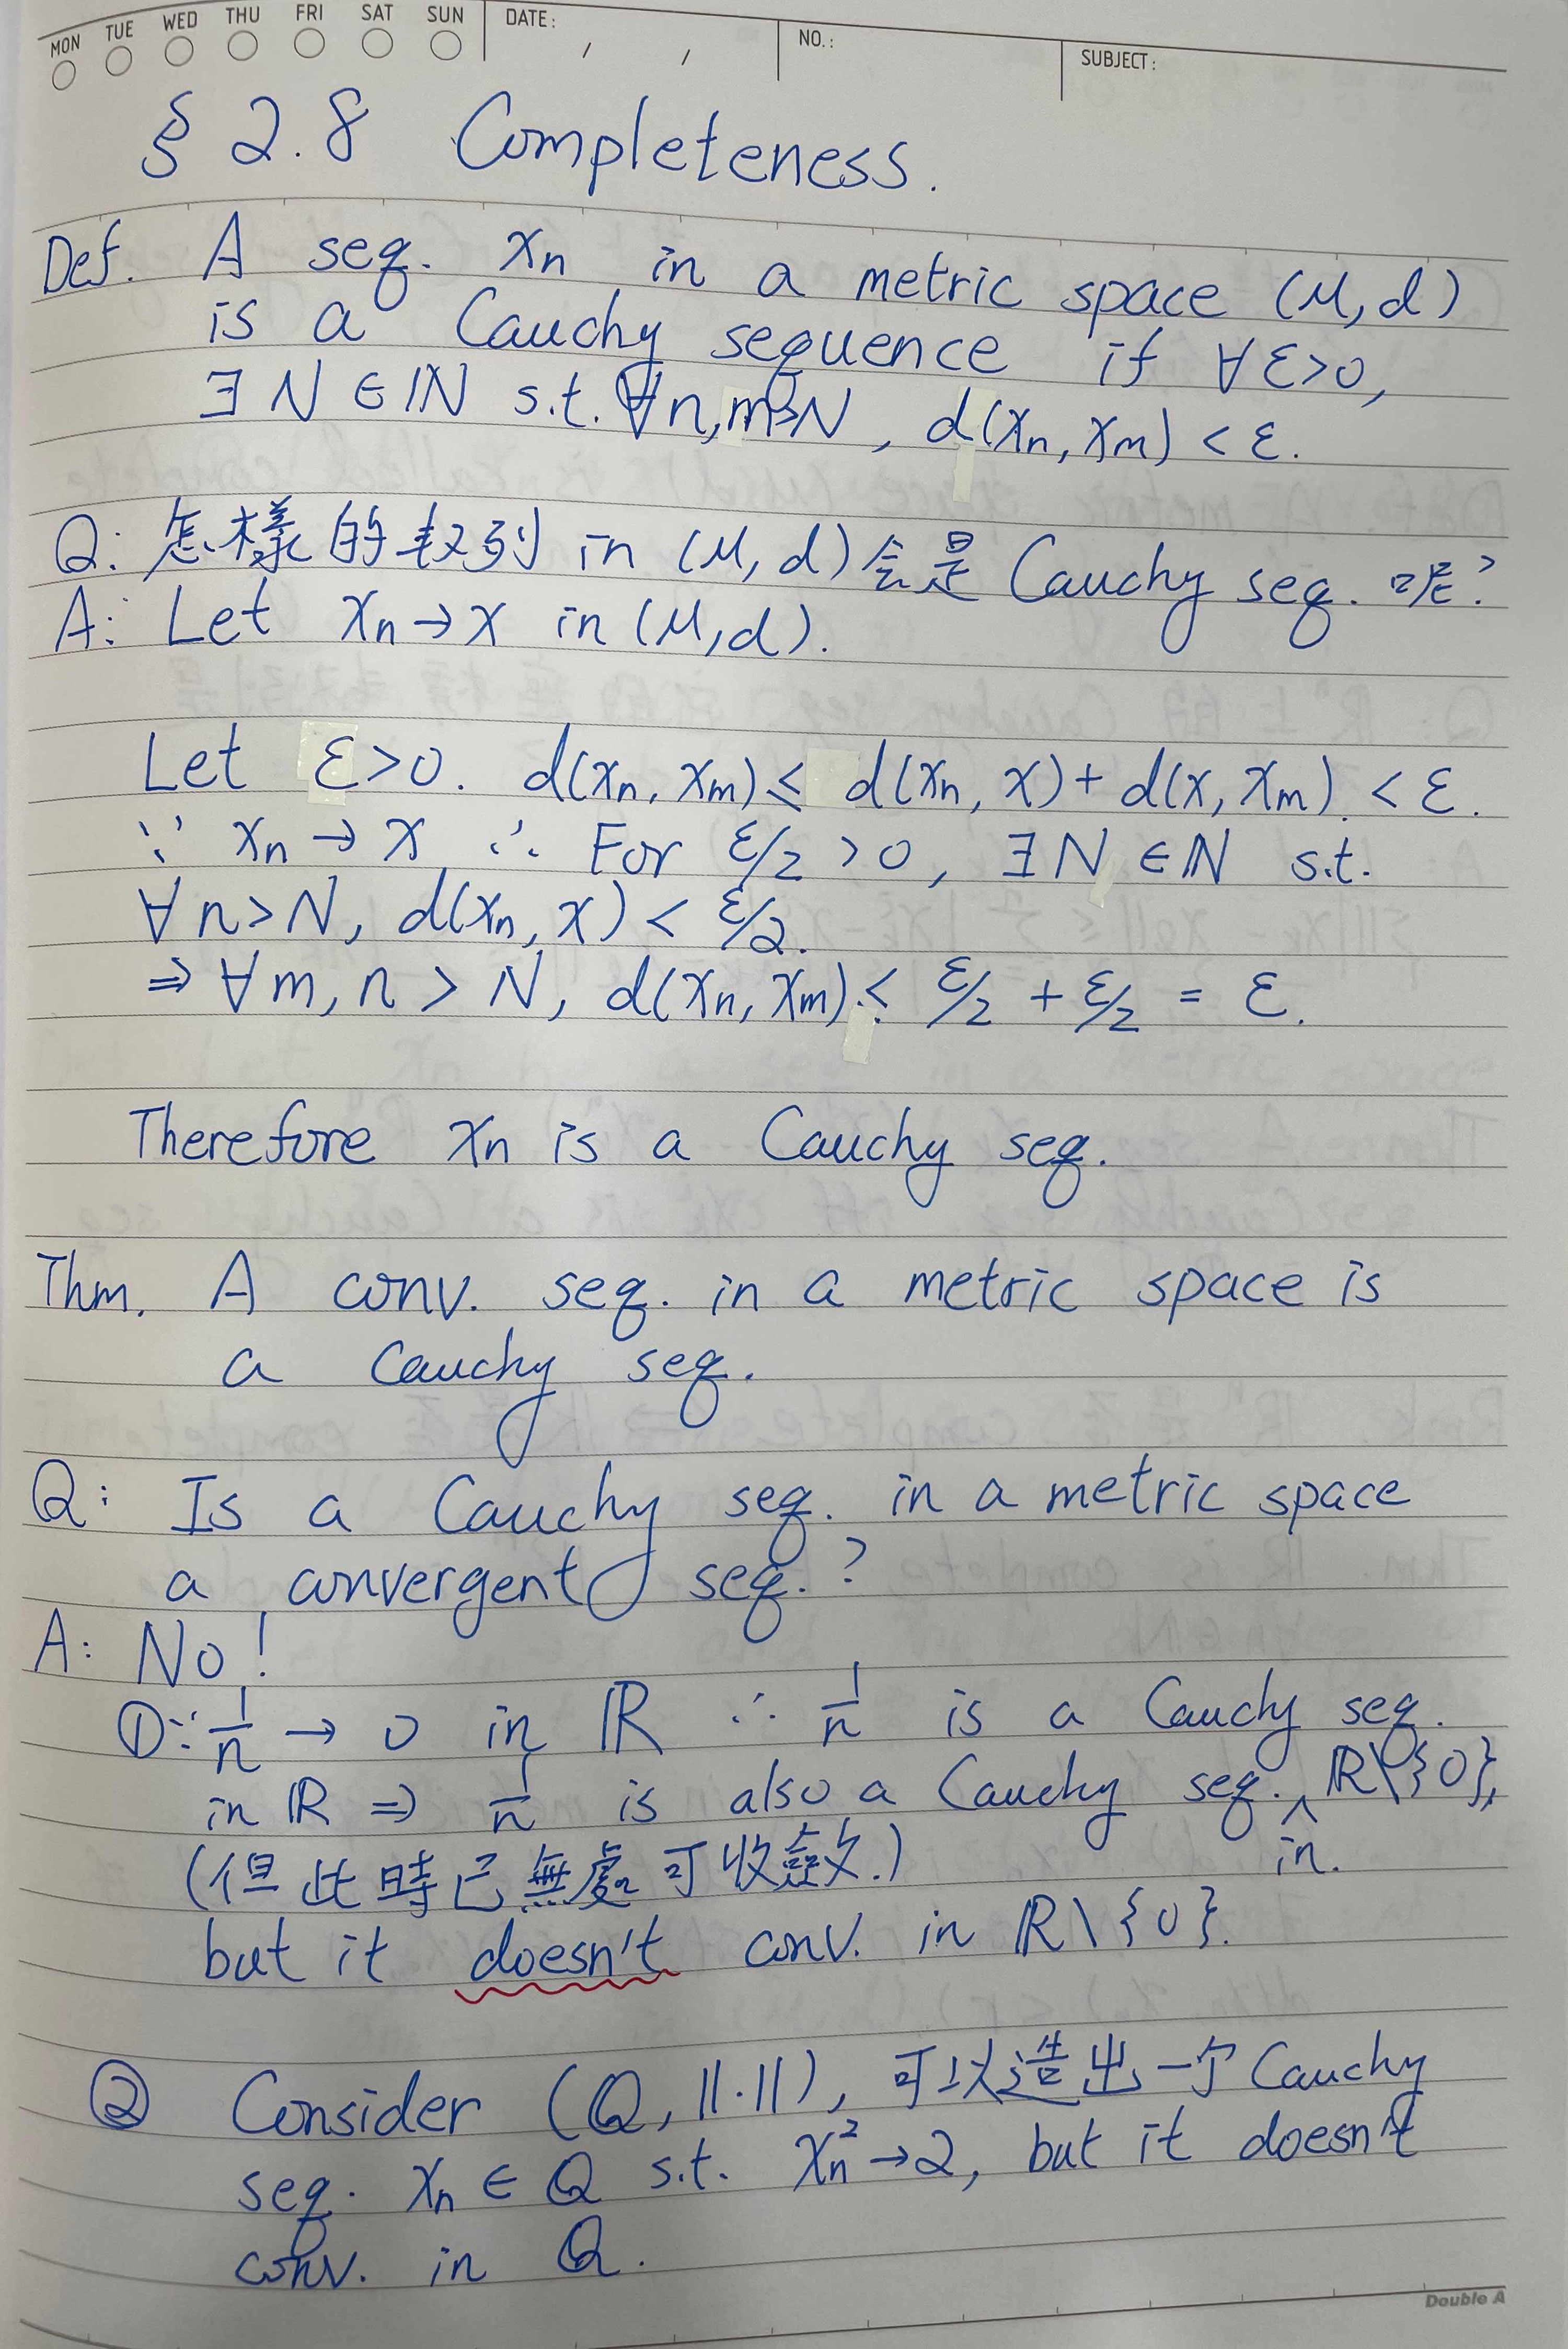 MON TUE WED THU FRI SAT SUN DATE: / / NO.: SUBJECT:
§ 2.8 Completeness.
Def. A seq. xn in a metric space (M,d)
is a Cauchy sequence if ∀ε>0,
∃N∈ℕ s.t. ∀n,m>N, d(xn, xm) < ε.
Q: 怎樣的数列 in (M,d) 会是 Cauchy seq. 呢?
A: Let xn→x in (M,d).
Let ε>0. d(xn, xm) ≤ d(xn, x) + d(x, xm) < ε.
∵ xn → x ∴ For ε/2 >0, ∃N∈ℕ s.t.
∀n>N, d(xn, x) < ε/2.
⇒ ∀m,n > N, d(xn, xm) < ε/2 + ε/2 = ε.
Therefore xn is a Cauchy seq.
Thm. A conv. seq. in a metric space is
a Cauchy seq.
Q: Is a Cauchy seq. in a metric space
a convergent seq.?
A: No!
① ∵ 1/n → 0 in ℝ ∴ 1/n is a Cauchy seq.
in ℝ ⇒ 1/n is also a Cauchy seq. in ℝ\{0},
(但此時已無處可收斂.)
but it doesn't conv. in ℝ\{0}.
② Consider (Q, ||·||), 可以造出一个 Cauchy
seq. xn ∈ Q s.t. xn²→2, but it doesn't
conv. in Q.
Double A